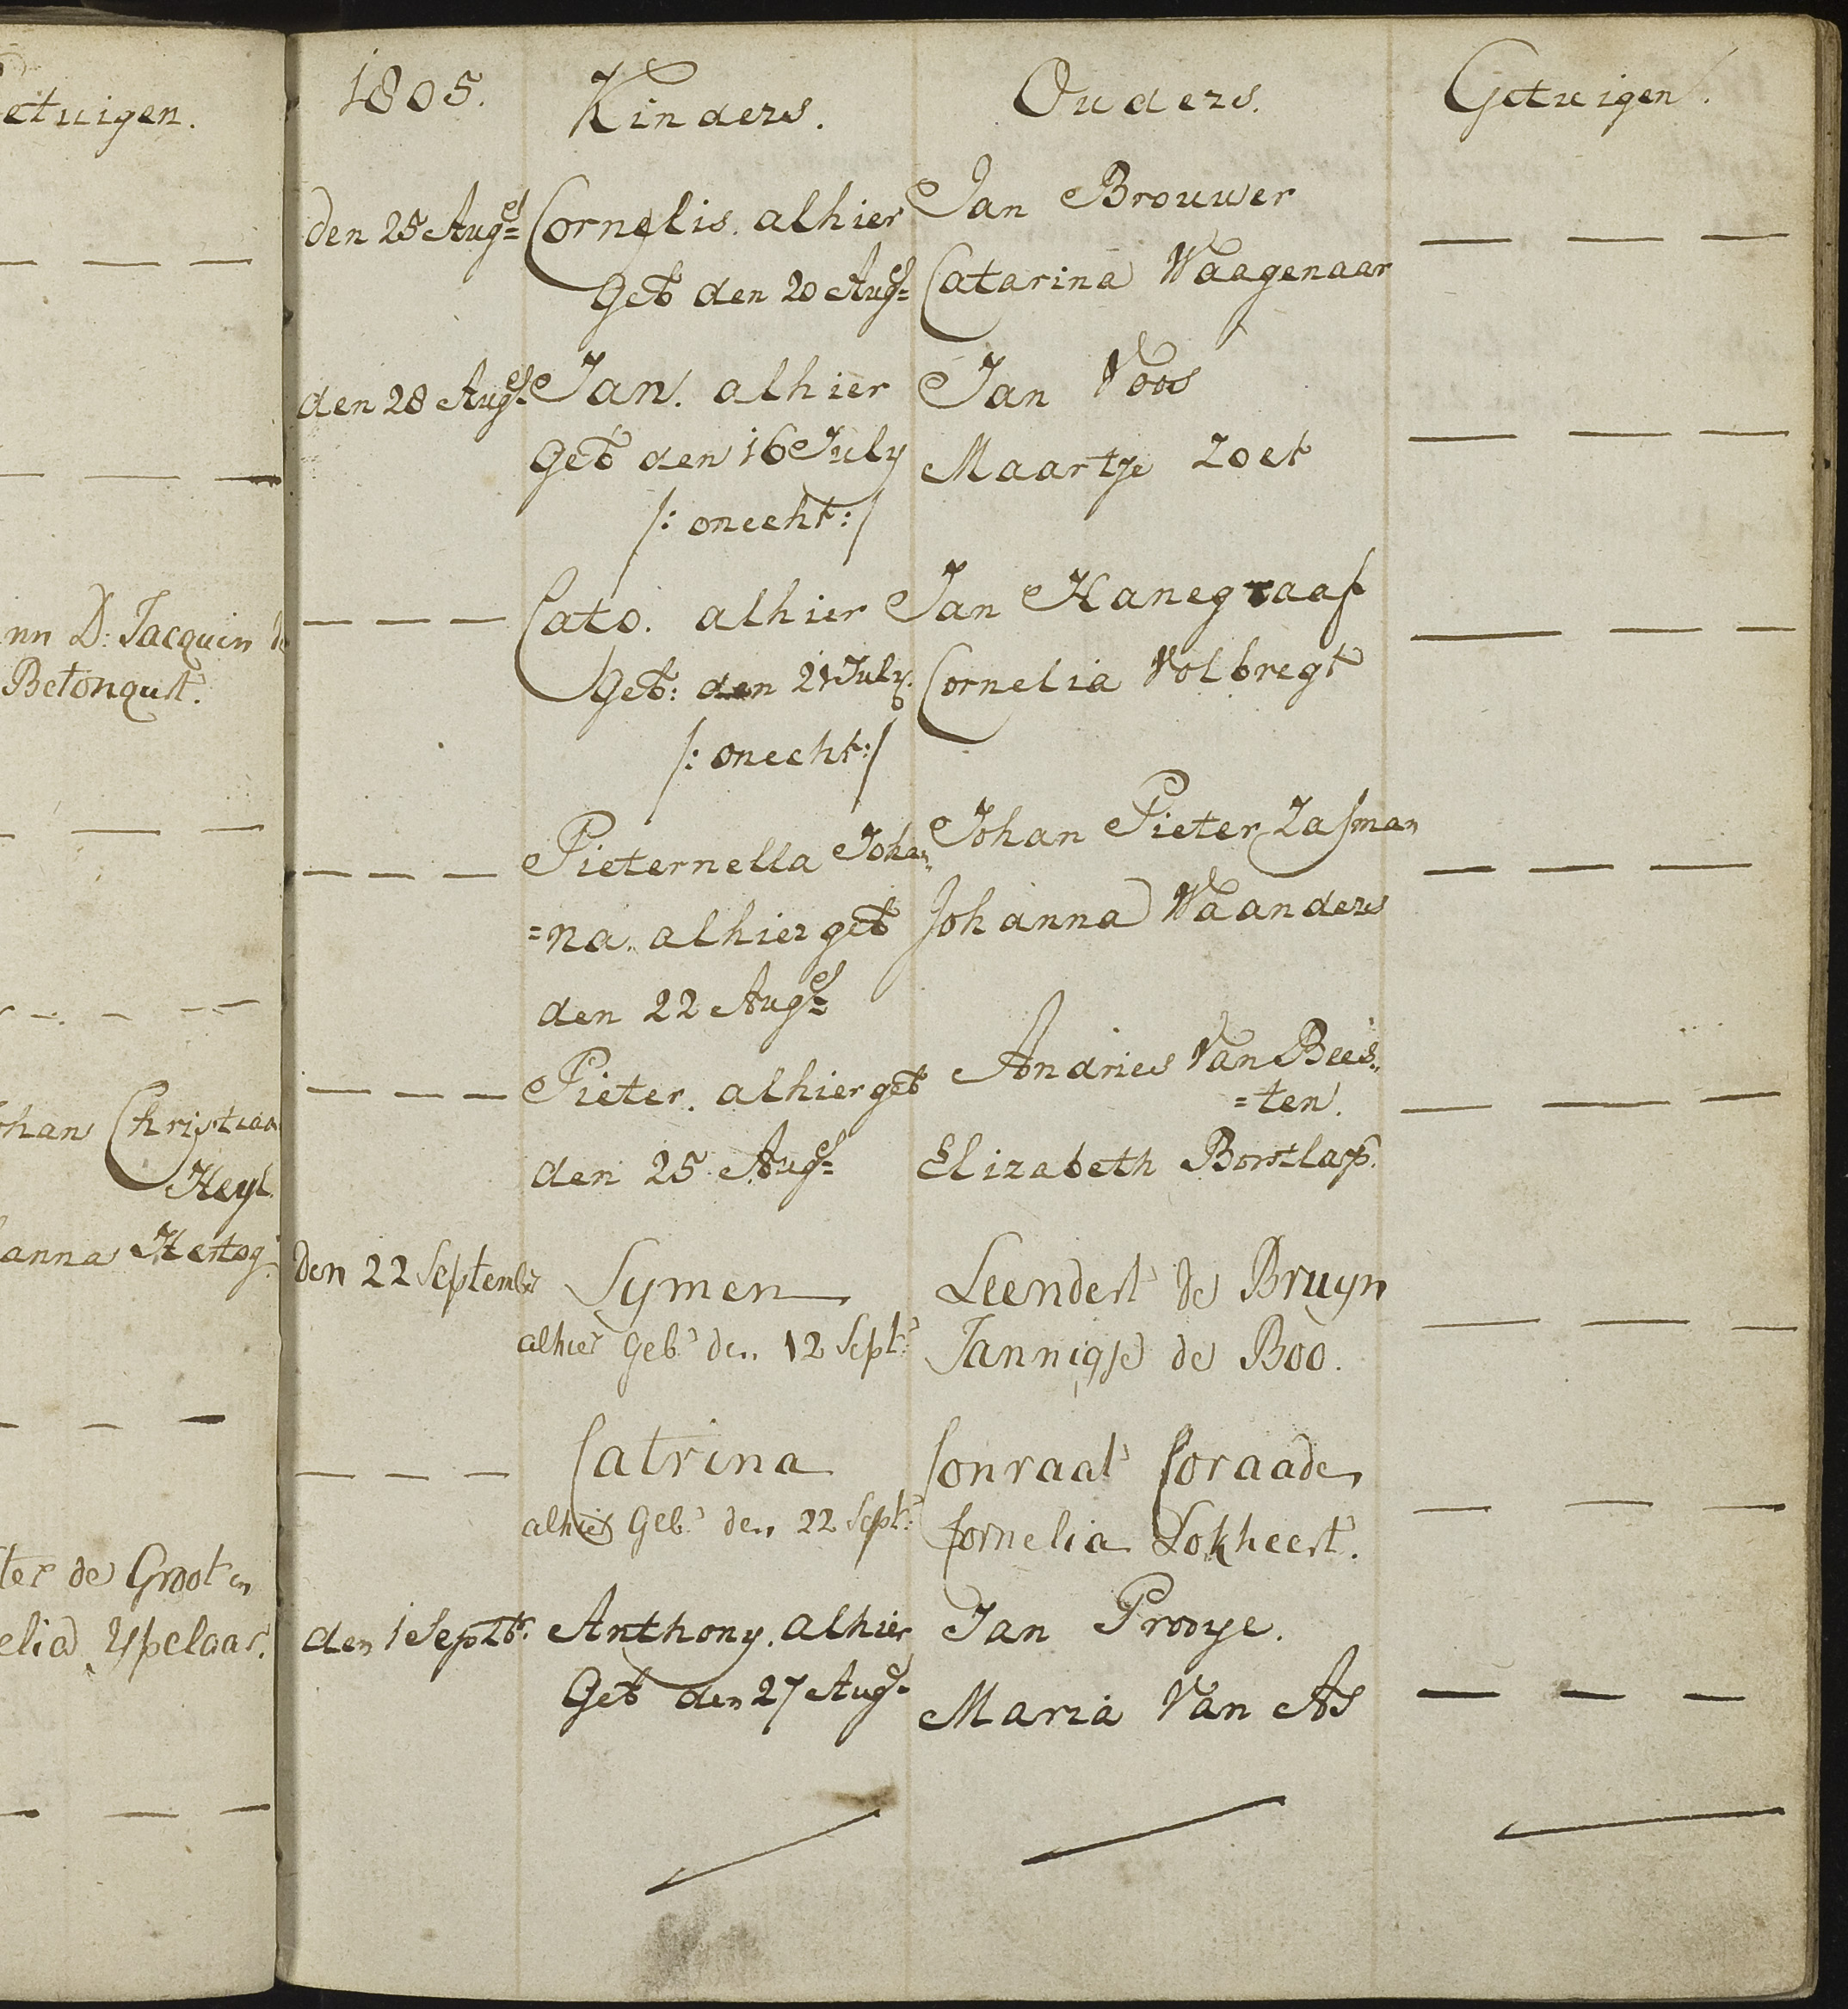 etuigen.
nn D: Jacquin de
Betonqust.
ohan Christiaan
Heyl.
anna Hertog.
ter de Groot en
elia Ypelaar.
1805. Kinders. Ouders. Getuigen.
den 25 Augs= Cornelis. alhier Jan Brouwer — — —
Geb den 20 Augs= Catarina Waagenaar
den 28 Augs= Jan. alhier Jan Voos
Geb den 16 July Maartje Zoet — — —
/: onecht :/
— — — Cato. alhier Jan Hanegraaf — — —
Geb: den 21 July. Cornelia Volbregt
/: onecht :/
— — — Pieternella Johan= Johan Pieter Zasman — — —
=na. alhier geb Johanna Waanders
den 22 Augs=
— — — Pieter. alhier geb Andries Van Bees=
=ten. — — —
den 25 Augs= Elizabeth Borstlap.
den 22 Septembr Symen Leendert de Bruyn
alhier Geb den 12 Sept: Jannigje de Boo. — — —
— — — Catrina Conraat Coraade
alhier Geb: den 22 Sept: Cornelia Lokheert. — — —
den 1 Septbr: Anthony. alhier Jan Prooye.
Geb den 27 Augs= Maria Van As — — —